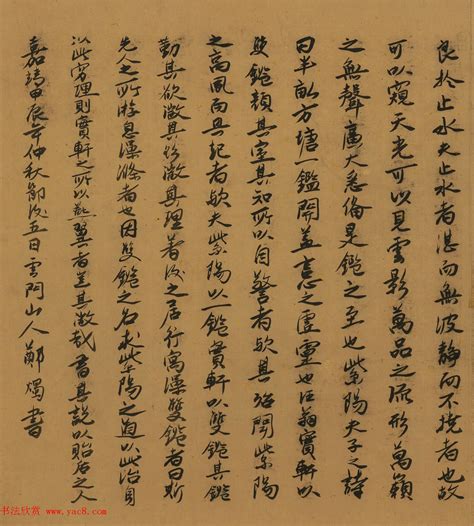 良於止水夫止水者湛而無波靜而不撓者也故
可以窺天光可以見雲影萬品之流形萬籟
之無聲廣大悉備是鑑之至也紫陽夫子之詩
曰半畝方塘一鑑開蓋言心之虛靈也汪翁實軒以
雙鑑顏其室其知所以自警者歟其殆聞紫陽
之高風而興起者歟夫紫陽以一鑑實軒以雙鑑其
勤其欲澂其理著後之居行寓澡雙鑑者曰斯
先人之所游息澡滌者也因雙鑑之名求紫陽之道以此治目
以此窮理則實軒之所以燕翼者豈其微哉書其說以貽后之人
嘉靖甲辰年仲秋節後五日雲門山人鄭燭書
书法欣赏 www.yac8.com